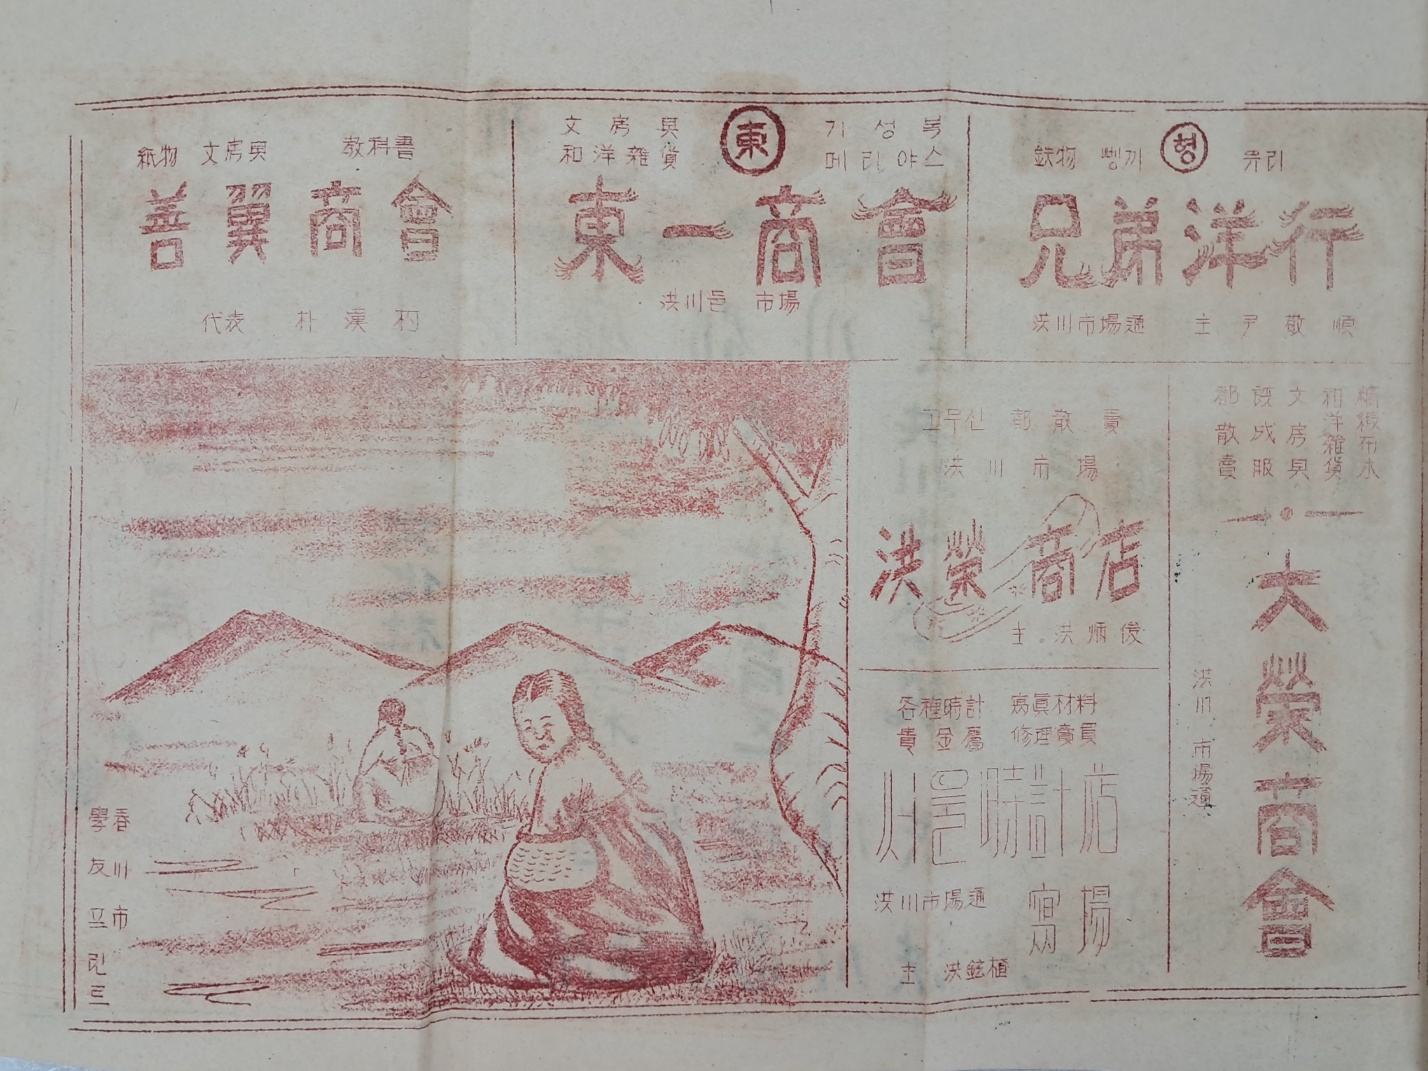 紙物 文房具 敎科書
善翼商會
代表 朴漢杓
文房具
和洋雜貨
東
기성복
메리야스
東一商會
洪川읍 市場
鉄物 뼁끼
형
유리
兄弟洋行
洪川市場通 主 尹敬順
고무신 都散賣
洪川市場
洪榮商店
主 洪炳俊
各種時計 寫眞材料
貴金屬 修理賣買
서울時計店
寫場
洪川市場通
主 洪鉉植
和洋雜貨
文房具
旣成服
都散賣
大榮商會
洪川市場通
春川市
學友프린트